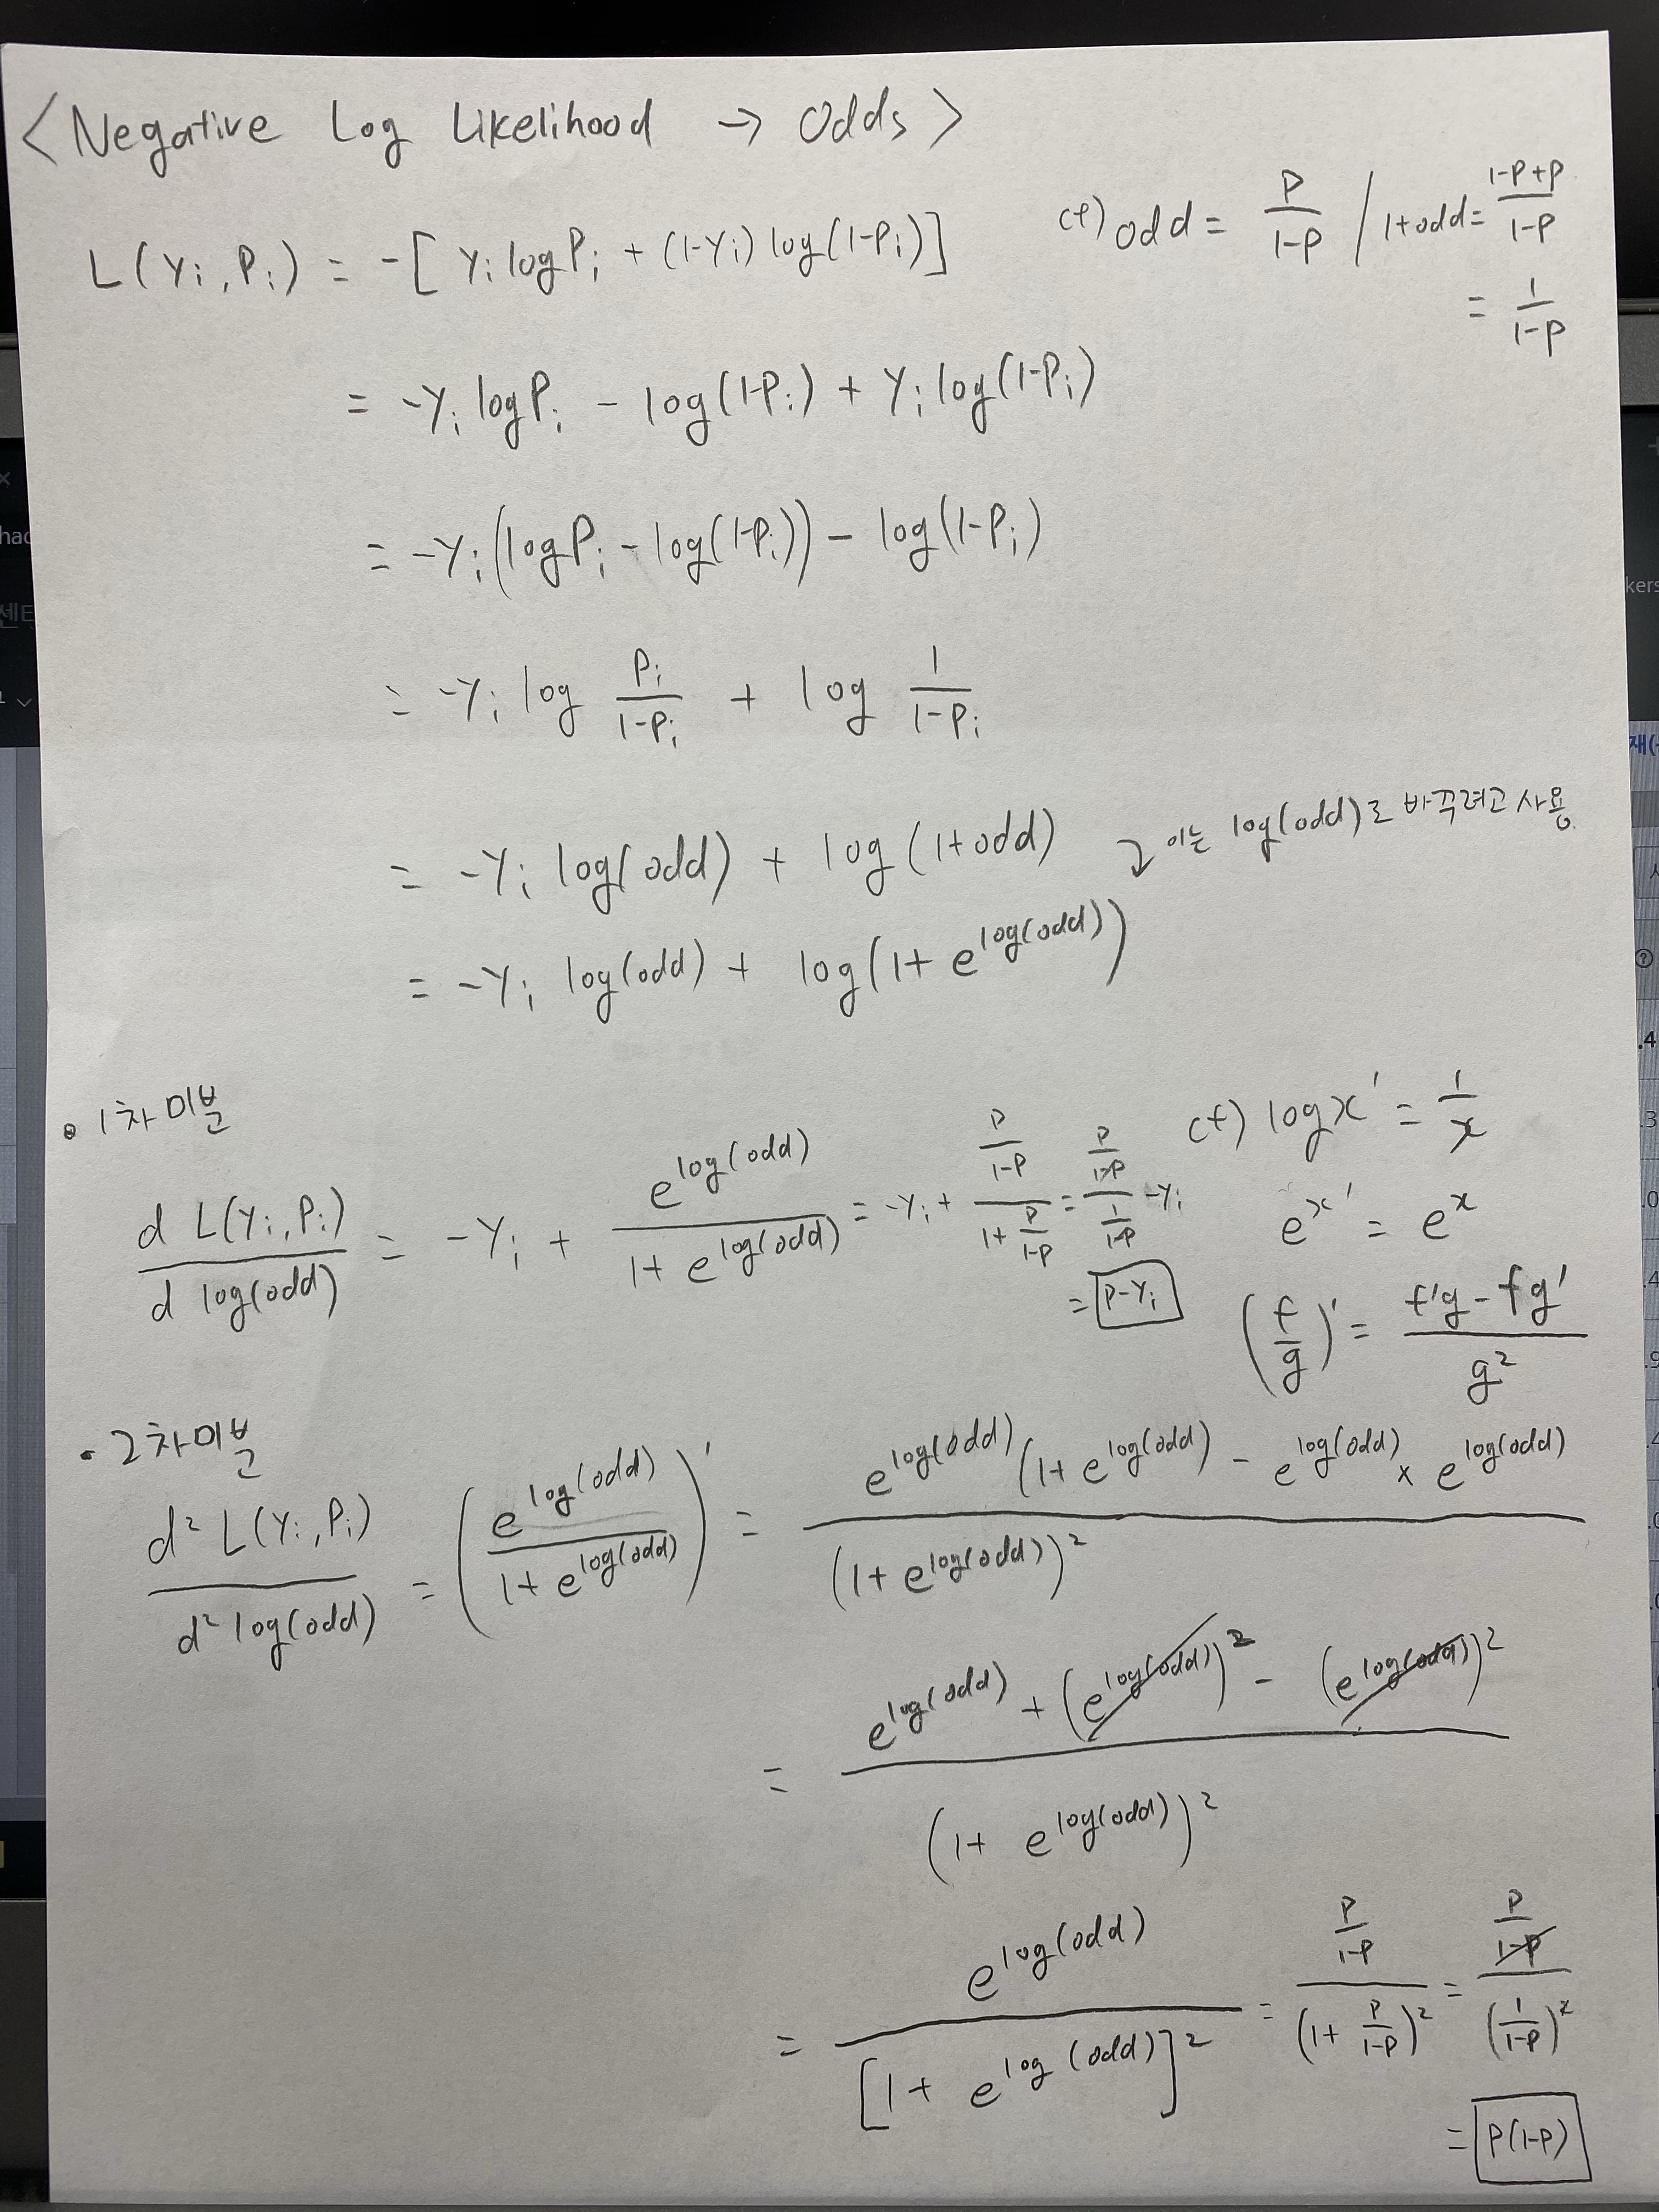 <Negative Log Likelihood → Odds>
L(Yi, Pi) = -[Yi logPi + (1-Yi) log(1-Pi)]
cf) odd = P/(1-P) / 1+odd = (1-P+P)/(1-P)
= 1/(1-P)
= -Yi logPi - log(1-Pi) + Yi log(1-Pi)
= -Yi(logPi - log(1-Pi)) - log(1-Pi)
= -Yi log Pi/(1-Pi) + log 1/(1-Pi)
= -Yi log(odd) + log(1+odd)
이는 log(odd)로 바꾸려고 사용
= -Yi log(odd) + log(1+ e^log(odd))
• 1차미분
cf) logx' = 1/x
d L(Yi, Pi) / d log(odd) = -Yi + e^log(odd) / (1+ e^log(odd)) = -Yi + (P/(1-P)) / (1+ P/(1-P)) = (P/(1-P)) / (1/(1-P)) -Yi
e^x' = e^x
= P-Yi
(f/g)' = (f'g - fg') / g²
• 2차미분
d² L(Yi, Pi) / d² log(odd) = (e^log(odd) / (1+ e^log(odd)))' = (e^log(odd) (1+ e^log(odd)) - e^log(odd) × e^log(odd)) / (1+ e^log(odd))²
= (e^log(odd) + (e^log(odd))² - (e^log(odd))²) / (1+ e^log(odd))²
= e^log(odd) / [1+ e^log(odd)]² = (P/(1-P)) / (1+ P/(1-P))² = (P/(1-P)) / (1/(1-P))²
= P(1-P)